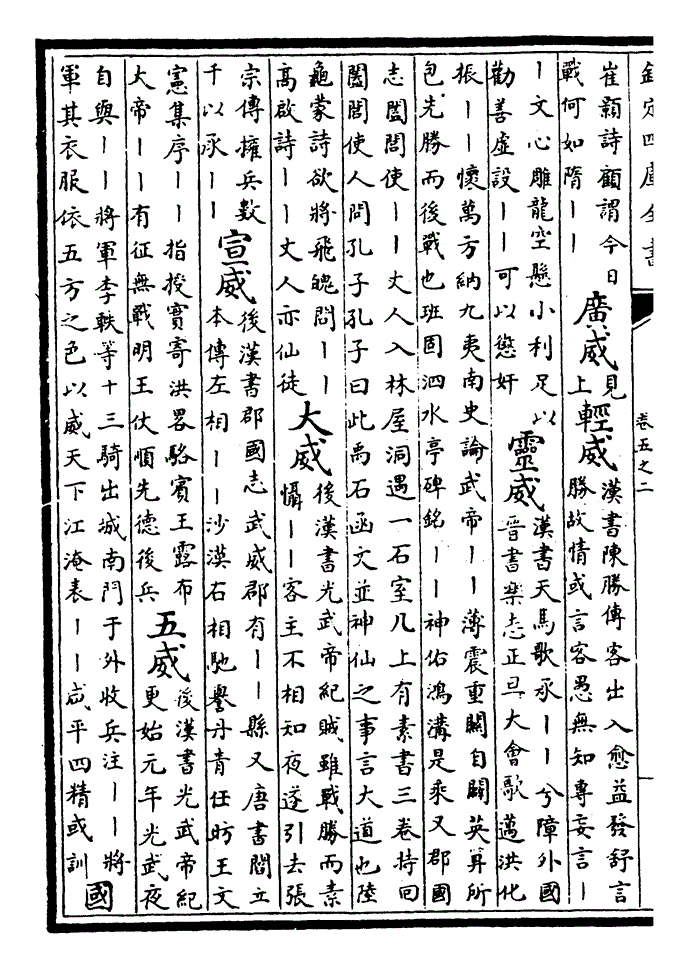 欽定四庫全書
卷五之二
崔顥詩顧謂今日
戰何如隋丨丨
廣威
見
上
輕威
漢書陳勝傳客出入愈益發舒言
勝故情或言客愚無知專妄言丨
丨文心雕龍空懸小利足以
勸善虛設丨丨可以懲奸
靈威
漢書天馬歌承丨丨兮障外國
晉書樂志正旦大會歌邁洪化
振丨丨懷萬方納九夷南史論武帝丨丨薄震重關自闢英算所
包先勝而後戰也班固泗水亭碑銘丨丨神佑鴻溝是乘又郡國
志闔閭使丨丨丈人入林屋洞遇一石室几上有素書三卷持回
闔閭使人問孔子孔子曰此禹石函文並神仙之事言大道也陸
龜蒙詩欲將飛魄問丨丨
高啟詩丨丨丈人亦仙徒
大威
後漢書光武帝紀賊雖戰勝而素
懾丨丨客主不相知夜遂引去張
宗傳擁兵數
千以承丨丨
宣威
後漢書郡國志武威郡有丨丨縣又唐書閻立
本傳左相丨丨沙漠右相馳譽丹青任昉王文
憲集序丨丨指授實寄洪畧駱賓王露布
大帝丨丨有征無戰明王仗順先德後兵
五威
後漢書光武帝紀
更始元年光武夜
自與丨丨將軍李軼等十三騎出城南門于外收兵注丨丨將
軍其衣服依五方之色以威天下江淹表丨丨咸平四精或訓
國